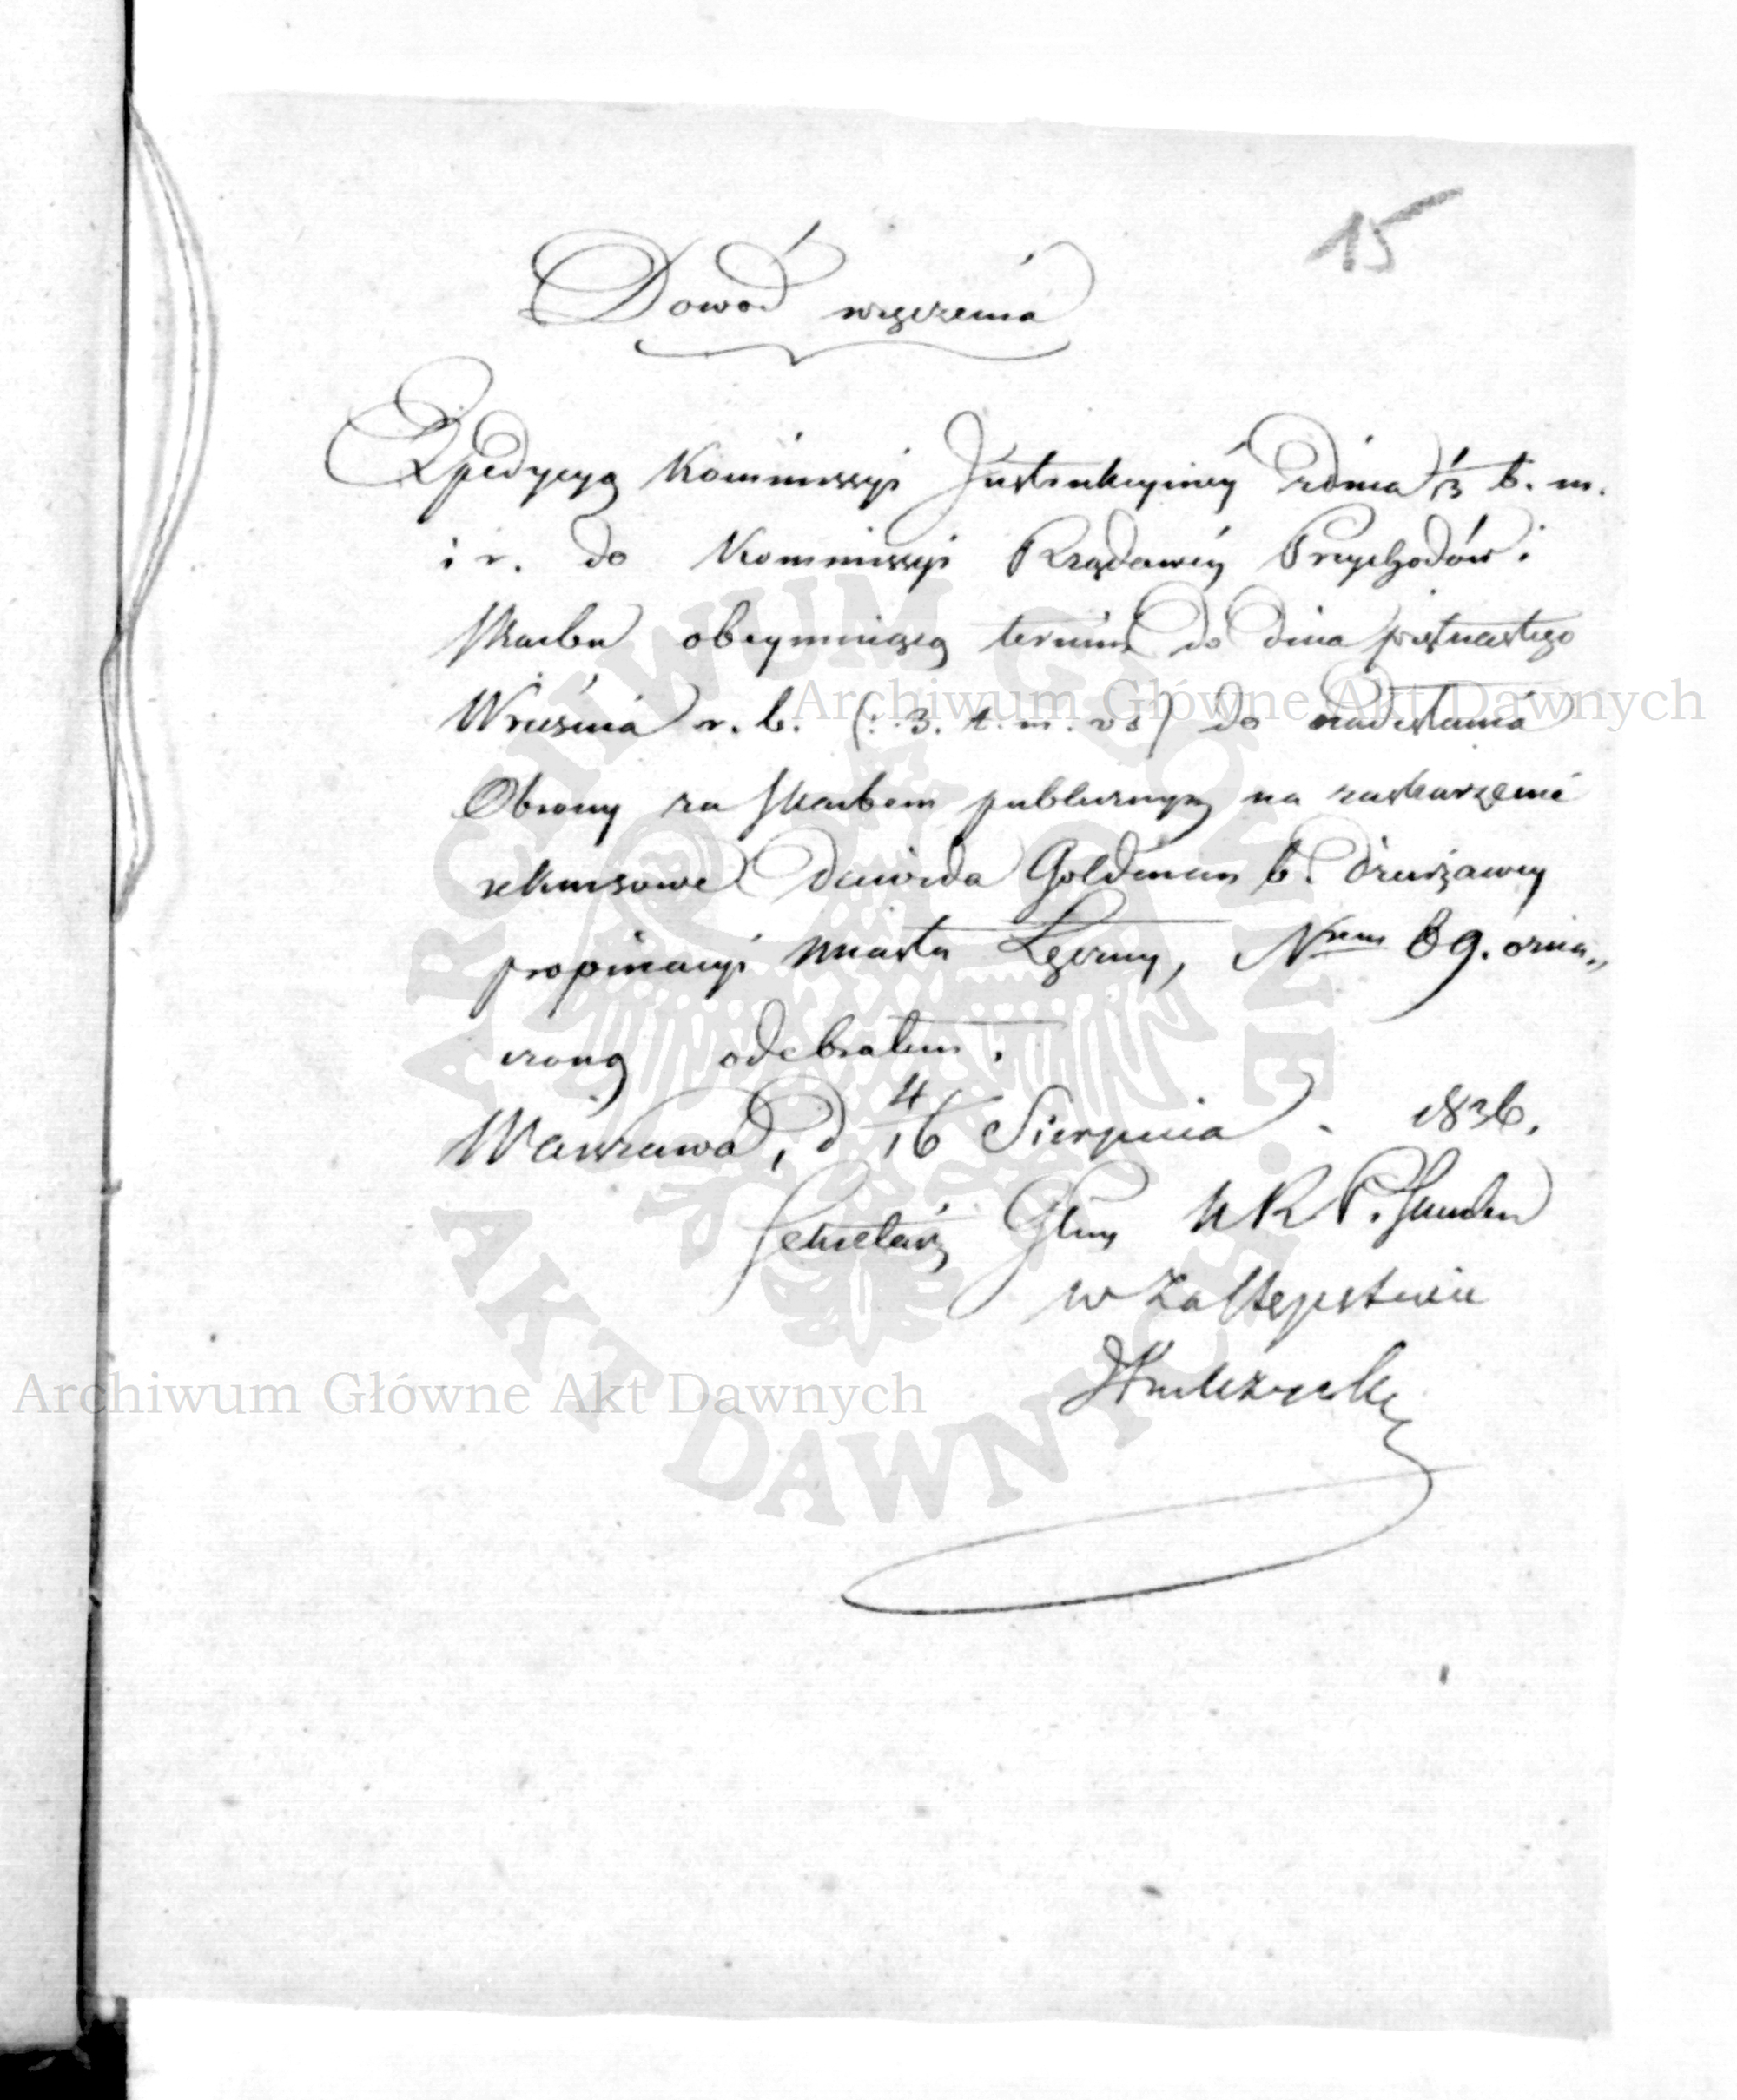 15
Dowód wręczenia
Expedycyą Kommissyi Instrukcyiney zdnia 1/13 b. m.
i r. do Kommissyi Rządowey Przychodów i
Skarbu obeymuiącą termin do dnia piętnastego
Września r. b. (: 3. t. m. v s) do nadesłania
Obrony za Skarbem publicznym na zaskarżenie
rekursowe Dawida Goldman b. dzierżawcy
propinacyi miasta Łęczny, Nrem 89. ozna„
czoną odebrałem.
Warszawa, d 4/16 Sierpnia 1836.
Sekretarz Glny K R P. Skarbu
w Zastępstwie
Archiwum Główne Akt Dawnych
Archiwum Główne Akt Dawnych
ARCHIWUM GŁÓWNE AKT DAWNYCH